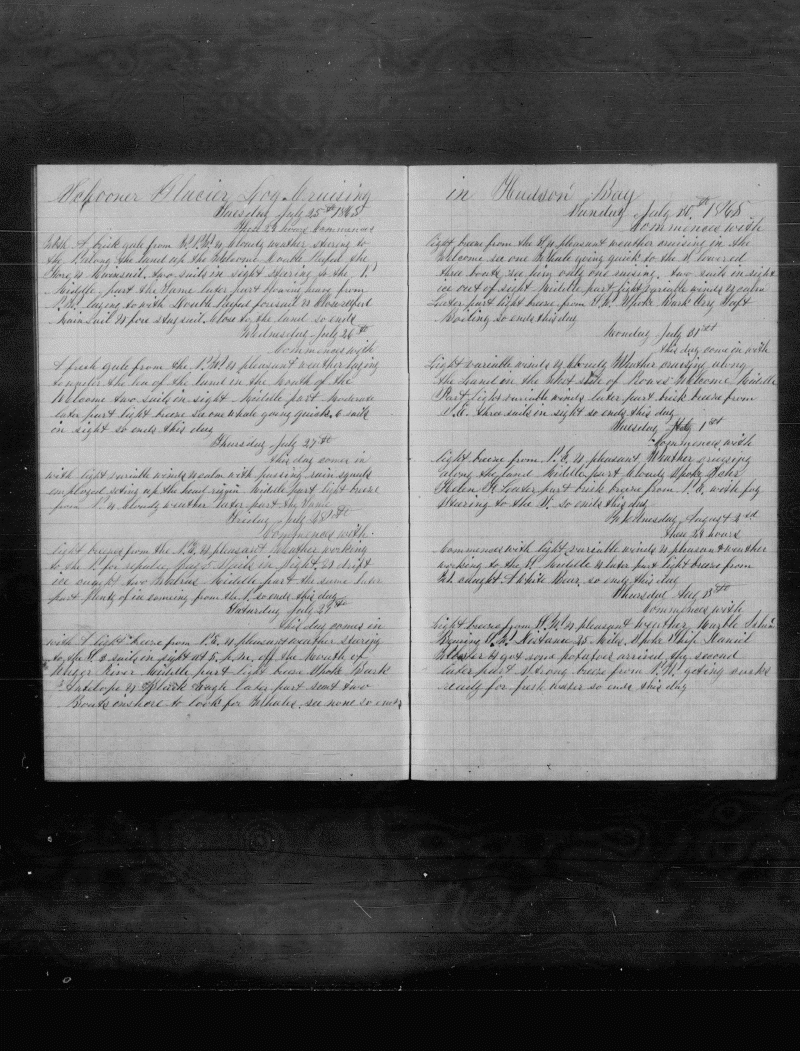 Schooner Glacier Log Cruising
Tuesday July 25th 1865
These 24 hours Commences
With A brisk gale from N.W. & Cloudy weather stering to
the along the land up the Welcome Double Reefed the
Fore & Mainsail two sails in sight stering to the N
Middle part the Same later part blowing heavy from
N.W. laying to with Double Reefed foresail & Close reefed
Mainsail & fore staysail Close to the land so ends
Wednesday July 26th
Commences with
A fresh gale from the N.W. & pleasant weather laying
to under the lea of the land in the Mouth of the
Welcome two sails in sight Middle part Moderate
later part light breeze saw one whale going quick 6 sails
in sight so ends this day
Thursday July 27th
this day comes in
with light variable winds & calm with passing rain squalls
employed seting up the head rigin Middle part light breeze
from N. & Cloudy weather later part the Same
Friday July 28th
Commences with
light breezes from the N.E. & pleasant Weather working
to the N for repulse Bay 5 Sails in Sight & drift
ice caught two Walrus Middle part the same later
part plenty of ice coming from the N. so ends this day
Saturday July 29th
this day comes in
with A light breeze from N.E. & pleasant weather stering
to the S. 2 sails in sight at 5 p.m. off the Mouth of
Wager River Middle part light breeze Spoke Bark
Antelope & Black Eagle later part sent two
Boats onshore to look for Whales see none so ends
in Hudson Bay
Sunday July 30th 1865
Commences with
light breeze from the S & pleasant weather cruising in the
Welcome saw one Whale going quick to the N lowered
three boats see him only one raising two sails in sight
ice out of sight Middle part light variable winds & calm
Later part light breeze from S.W. Spoke Bark Ory Taft
Boiling so ends this day
Monday July 31st
this day come in with
Light variable winds & Cloudy Weather cruising along
the Land on the West side of Rowes Welcome Middle
Part light variable winds later part brisk breeze from
S.E. three sails in sight so ends this day
Tuesday Aug 1st
Commences with
light breeze from N.E. & pleasant Weather cruising
along the land Middle part Cloudy Spoke Schr
Helen F Later part brisk breeze from N.E. with fog
Stearing to the S. so ends this day
Wednesday August 2nd
these 24 hours
Commences with light variable winds & pleasant weather
working to the S Middle & later part light breeze from
W. caught A White Bear so ends this day
Thursday Aug 3th
Commences with
Light breeze from S.W. & pleasant Weather Marble Island
Bearing Distance 25 Miles Spoke Ship Daniel
Webster & got some potatoes arrived the second
later part strong breeze from N.W. geting casks
ready for fresh water so ends this day